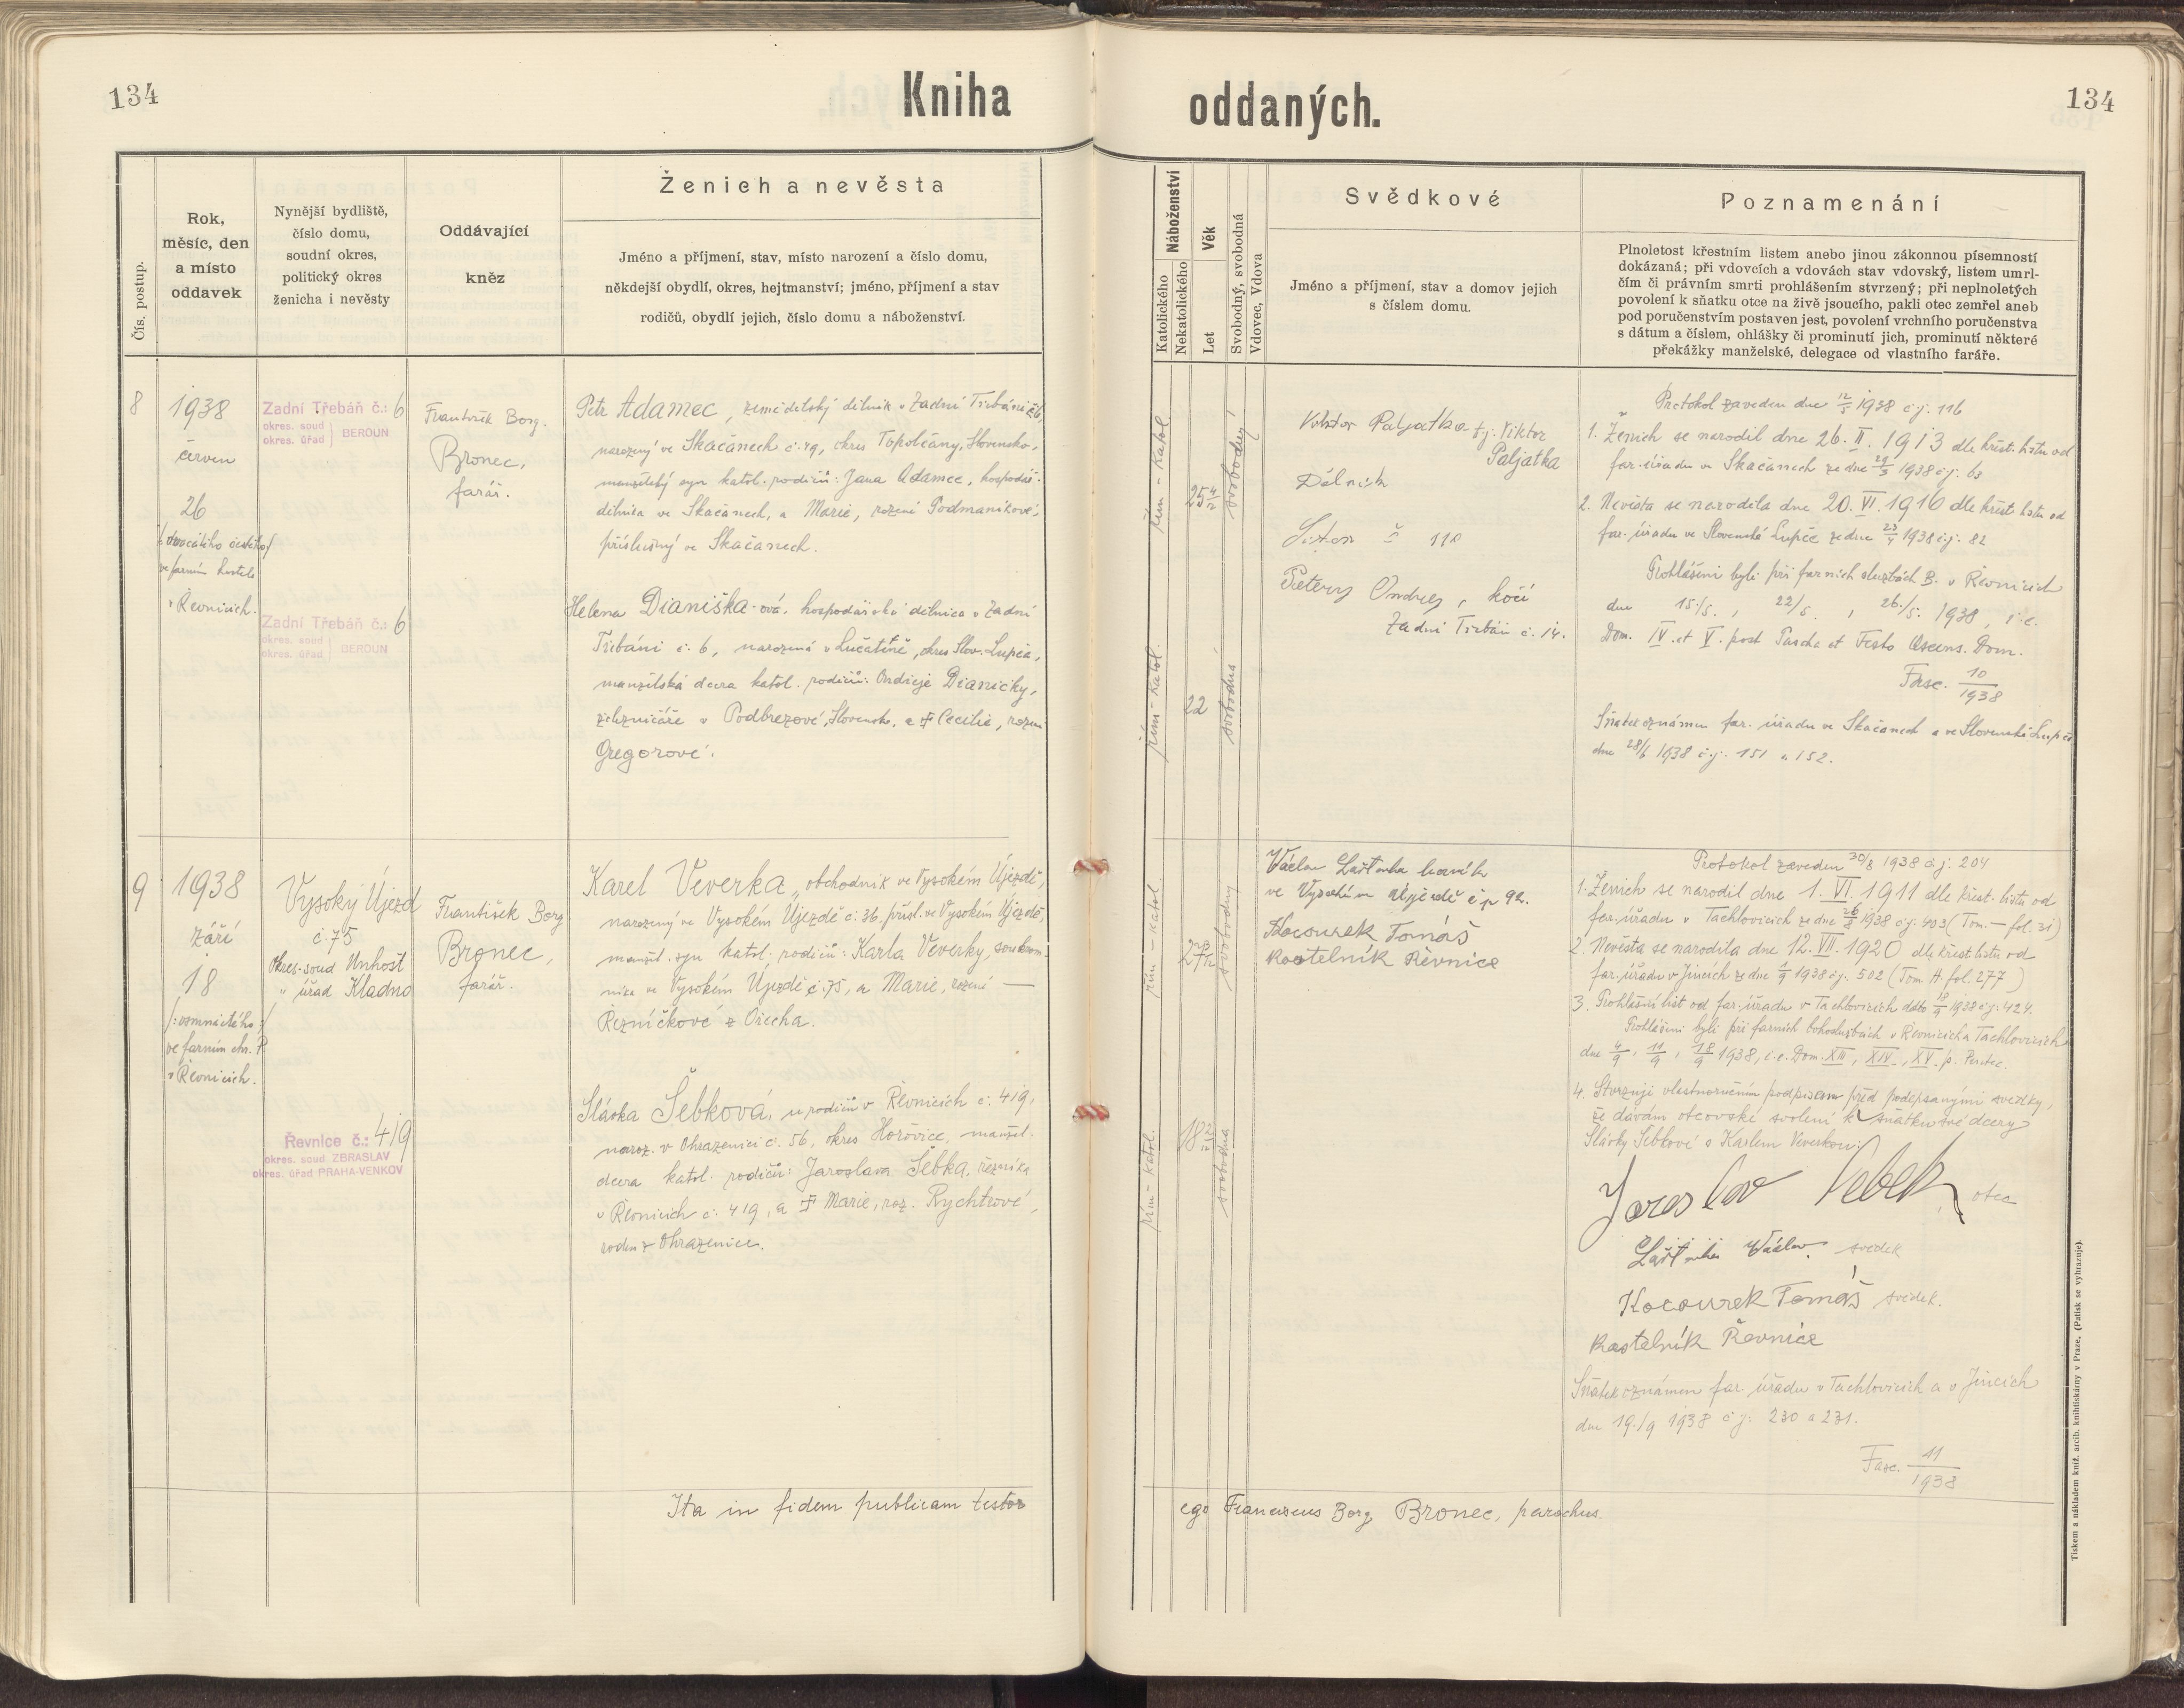 134
Kniha
oddaných.
134
Čís. postup.
Rok,
měsíc, den
a místo
oddavek
Nynější bydliště,
číslo domu,
soudní okres,
politický okres
ženicha i nevěsty
Oddávající
kněz
Ženich a nevěsta
Jméno a příjmení, stav, místo narození a číslo domu,
někdejší obydlí, okres, hejtmanství; jméno, příjmení a stav
rodičů, obydlí jejich, číslo domu a náboženství.
Náboženství
Katolického
Nekatolického
Věk
Let
Svobodný, svobodná
Vdovec, Vdova
Svědkové
Jméno a příjmení, stav a domov jejich
s číslem domu.
Poznamenání
Plnoletost křestním listem anebo jinou zákonnou písemností
dokázaná; při vdovcích a vdovách stav vdovský, listem umrl-
čím či právním smrti prohlášením stvrzený; při neplnoletých
povolení k sňatku otce na živě jsoucího, pakli otec zemřel aneb
pod poručenstvím postaven jest, povolení vrchního poručenstva
s dátum a číslem, ohlášky či prominutí jich, prominutí některé
překážky manželské, delegace od vlastního faráře.
8
1938
červen
26
/: dvacátého šestého /
ve farním kostele
v Řevnicích.
Zadní Třebáň č.: 6
okres. soud
okres. úřad } BEROUN
Zadní Třebáň č.: 6
okres. soud
okres. úřad } BEROUN
František Borg.
Bronec,
farář.
Petr Adamec, zemědělský dělník v Zadní Třebáni č. 6,
narozený ve Skačanech č. 49, okres Topolčany, Slovensko,
manželský syn katol. rodičů: Jana Adamce, hospodář.
dělníka ve Skačanech, a Marie, rozené Podmaníkové,
příslušný ve Skačanech.
Helena Dianiška-ová, hospodářská dělnice v Zadní
Třebáni č. 6, narozená v Lučatíně, okres Slov. Lupča,
manželská dcera katol. rodičů: Ondřeje Dianišky,
železničáře v Podbrezové, Slovensko, a † Cecilie, rozen
Gregorové.
řím - katol.
25 4/12
svobodný
řím - katol.
22
svobodná
Viktor Paljatka t. j. Viktor
Paljatka
Dělník
110
Ondrej, kočí
Zadní Třebáň č. 14.
Protokol zaveden dne 12/5 1938 č. j. 116
1. Ženich se narodil dne 26. II. 1913 dle křest. listu od
far. úřadu ve Skačanech ze dne 29/3 1938 č. j. 63
2. Nevěsta se narodila dne 20. VI. 1916 dle křest. listu od
far. úřadu ve Slovenské Lupče ze dne 23/4 1938 č. j. 82
Prohlášeni byli při farních službách B. v Řevnicích
dne 15./5., 22/5., 26./5. 1938, i. e.
Dom. IV. et V. post Pascha et Festo Ascens. Dom.
Fasc. 10/1938
Sňatek oznámen far. úřadu ve Skačanech a ve Slovenské Lupče
dne 28/6 1938 č. j. 151 a 152.
9
1938
září
18
/: osmnáctého :/
ve farním chr. P.
v Řevnicích.
Vysoký Újezd
č. 75
Okres. soud Unhošť
" úřad Kladno
Řevnice č.: 419
okres. soud ZBRASLAV
okres. úřad PRAHA-VENKOV
František Borg
Bronec,
farář.
Karel Veverka, obchodník ve Vysokém Újezdě,
narozený ve Vysokém Újezdě č. 36, přísl. ve Vysokém Újezdě,
manžel. syn katol. rodičů: Karla Veverky, soukrom-
níka ve Vysokém Újezdě č. 75, a Marie, rozené —
Řezníčkové z Ořecha.
Slávka Šebková, u rodičů v Řevnicích č. 419,
naroz. v Ohrazenici č. 56, okres Hořovice, manžel.
dcera katol. rodičů: Jaroslava Šebka, řezníka
v Řevnicích č. 419, a † Marie, roz. Rychtrové,
rodem z Ohrazenice.
řím - katol.
27 3/12
svobodný
řím - katol.
18 2/12
svobodná
Václav Laštovka
ve Vysokém Újezdě č p 92.
Kocourek Tomáš
Kostelník Řevnice
Protokol zaveden 30/8 1938 č. j. 204
1. Ženich se narodil dne 1. VI. 1911 dle křest. listu od
far. úřadu v Tachlovicích ze dne 26/8 1938 č. j. 403 (Tom. — fol. 31)
2. Nevěsta se narodila dne 12. VII. 1920 dle křest. listu od
far. úřadu v Jincích ze dne 1/9 1938 č. j. 502 (Tom. A. fol. 277)
3. Prohlášní list od far. úřadu v Tachlovicích ddto 18/9 1938 č. j. 424.
Prohlášeni byli při farních bohoslužbách v Řevnicích a Tachlovicích
dne 4/9, 11/9, 18/9 1938, i. e. Dom. XIII., XIV., XV. p. Pentec.
4. Stvrzuji vlastnoručním podpisem před podepsanými svědky,
že dávám otcovské svolení k sňatku své dcery
Slávky Šebkové s Karlem Veverkou:
Jaroslav Šebek, otec
Laštovka Václav. svědek
Kocourek Tomáš svědek.
Kostelník Řevnice
Sňatek oznámen far. úřadu v Tachlovicích a v Jincích
dne 19./9 1938 č. j: 230 a 231.
Fasc. 11/1938
Ita in fidem publicam testor
ego Franciscus Borg. Bronec, parochus.
Tiskem a nákladem kníž. arcib. knihtiskárny v Praze. (Patisk se vyhrazuje).